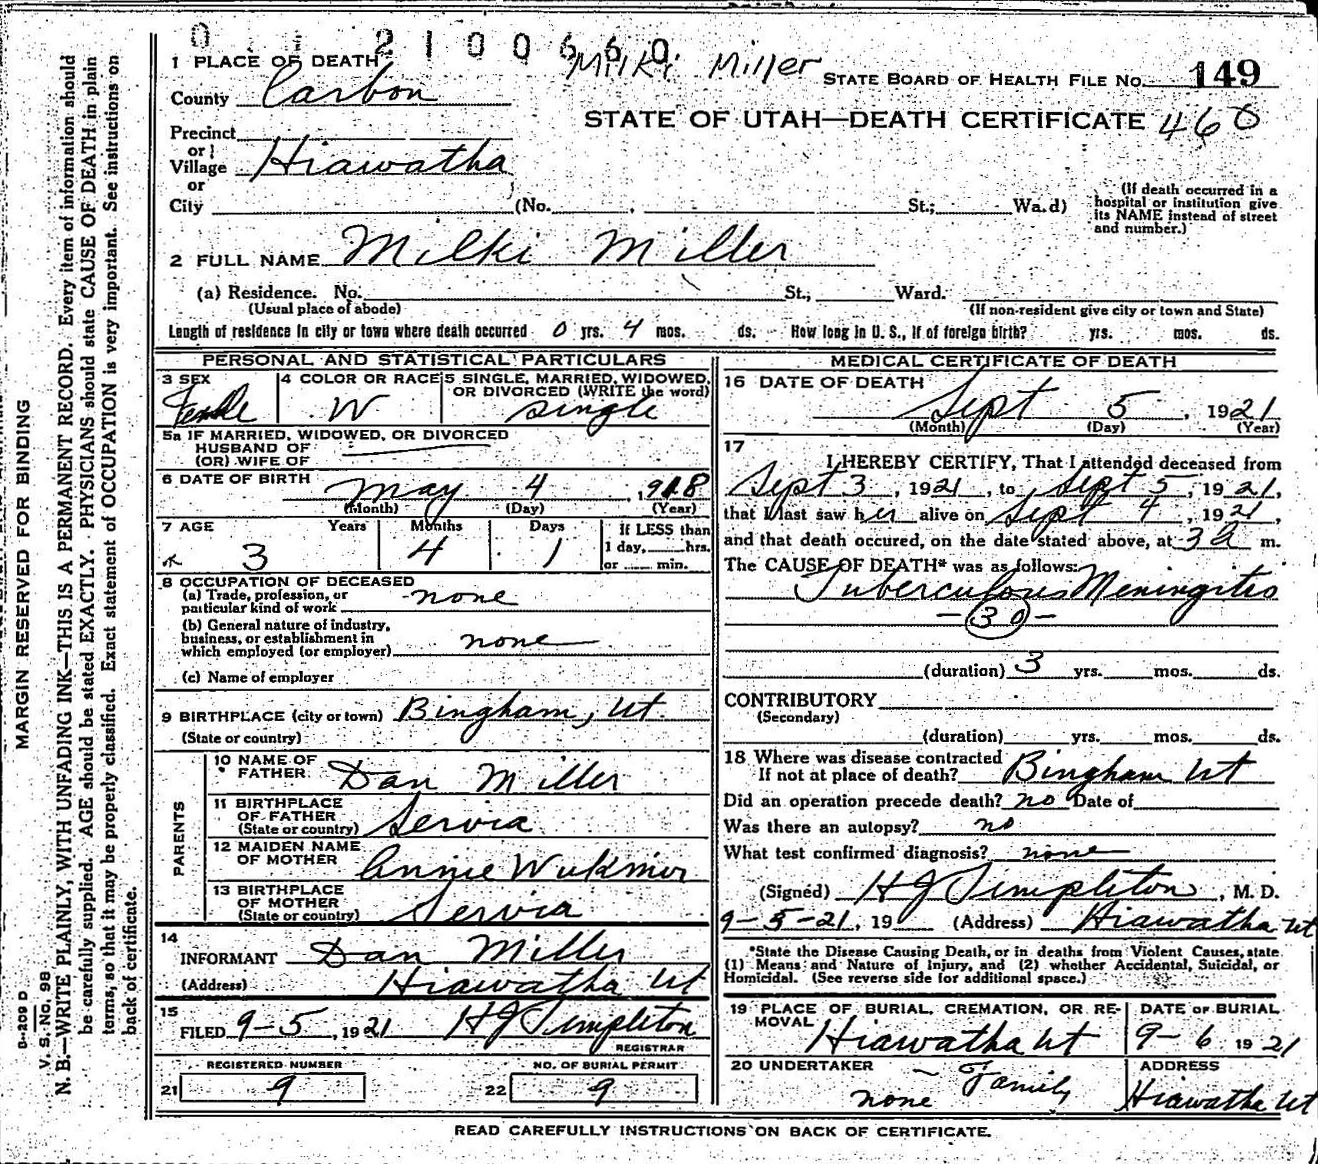 0 1 2100660
Milki Miller
1 PLACE OF DEATH
STATE BOARD OF HEALTH FILE NO. 149
County Carbon
STATE OF UTAH—DEATH CERTIFICATE 460
Precinct
or
Village Hiawatha
or
City (No. , St.; Wa.d)
(If death occurred in a
hospital or institution give
its NAME instead of street
and number.)
2 FULL NAME Milki Miller
(a) Residence. No. St.; Ward.
(Usual place of abode) (If non-resident give city or town and State)
Length of residence in city or town where death occurred 0 yrs. 4 mos. ds. How long in U. S., if of foreign birth? yrs. mos. ds.
PERSONAL AND STATISTICAL PARTICULARS
3 SEX 4 COLOR OR RACE 5 SINGLE, MARRIED, WIDOWED,
OR DIVORCED (WRITE the word)
Female W Single
5a IF MARRIED, WIDOWED, OR DIVORCED
HUSBAND OF
(OR) WIFE OF
6 DATE OF BIRTH May 4, 1918
(Month) (Day) (Year)
7 AGE Years Months Days If LESS than
1 day, hrs.
or min.
3 4 1
8 OCCUPATION OF DECEASED
(a) Trade, profession, or
particular kind of work none
(b) General nature of industry,
business, or establishment in
which employed (or employer) none
(c) Name of employer
9 BIRTHPLACE (city or town) Bingham, Ut.
(State or country)
PARENTS
10 NAME OF
FATHER Dan Miller
11 BIRTHPLACE
OF FATHER
(State or country) Servia
12 MAIDEN NAME
OF MOTHER Annie Wukmir
13 BIRTHPLACE
OF MOTHER
(State or country) Servia
14
INFORMANT Dan Miller
(Address) Hiawatha Ut
15
FILED 9-5, 1921 HJ Templeton
REGISTRAR
REGISTERED NUMBER NO. OF BURIAL PERMIT
21 9 22 9
MEDICAL CERTIFICATE OF DEATH
16 DATE OF DEATH
Sept 5, 1921
(Month) (Day) (Year)
17
I HEREBY CERTIFY, That I attended deceased from
Sept 3, 1921, to Sept 5, 1921,
that I last saw her alive on Sept 4, 1921,
and that death occured, on the date stated above, at 3 a m.
The CAUSE OF DEATH* was as follows:
Tuberculous Meningitis
-30-
(duration) 3 yrs. mos. ds.
CONTRIBUTORY
(Secondary)
(duration) yrs. mos. ds.
18 Where was disease contracted
If not at place of death? Bingham Ut
Did an operation precede death? no Date of
Was there an autopsy? no
What test confirmed diagnosis? none
(Signed) HJ Templeton, M. D.
9-5-21, 19 (Address) Hiawatha Ut
*State the Disease Causing Death, or in deaths from Violent Causes, state
(1) Means and Nature of Injury, and (2) whether Accidental, Suicidal, or
Homicidal. (See reverse side for additional space.)
19 PLACE OF BURIAL, CREMATION, OR RE-
MOVAL Hiawatha Ut
DATE OF BURIAL
9-6 1921
20 UNDERTAKER
none - Family
ADDRESS
Hiawatha Ut
READ CAREFULLY INSTRUCTIONS ON BACK OF CERTIFICATE.
MARGIN RESERVED FOR BINDING
B-209 D
V. S. No. 98
N. B.—WRITE PLAINLY, WITH UNFADING INK—THIS IS A PERMANENT RECORD. Every item of information should
be carefully supplied. AGE should be stated EXACTLY. PHYSICIANS should state CAUSE OF DEATH in plain
terms, so that it may be properly classified. Exact statement of OCCUPATION is very important. See instructions on
back of certificate.